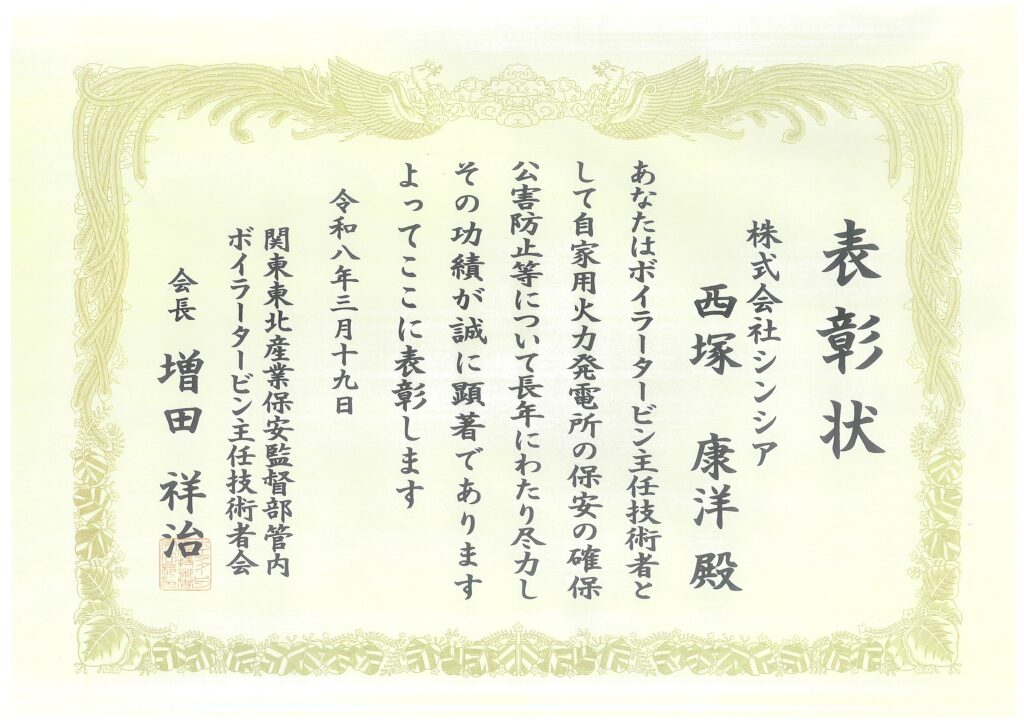 表彰状
株式会社シンシア
西塚 康洋 殿
あなたはボイラータービン主任技術者と
して自家用火力発電所の保安の確保
公害防止等について長年にわたり尽力し
その功績が誠に顕著であります
よってここに表彰します
令和八年三月十九日
関東東北産業保安監督部管内
ボイラータービン主任技術者会
会長 増田 祥治